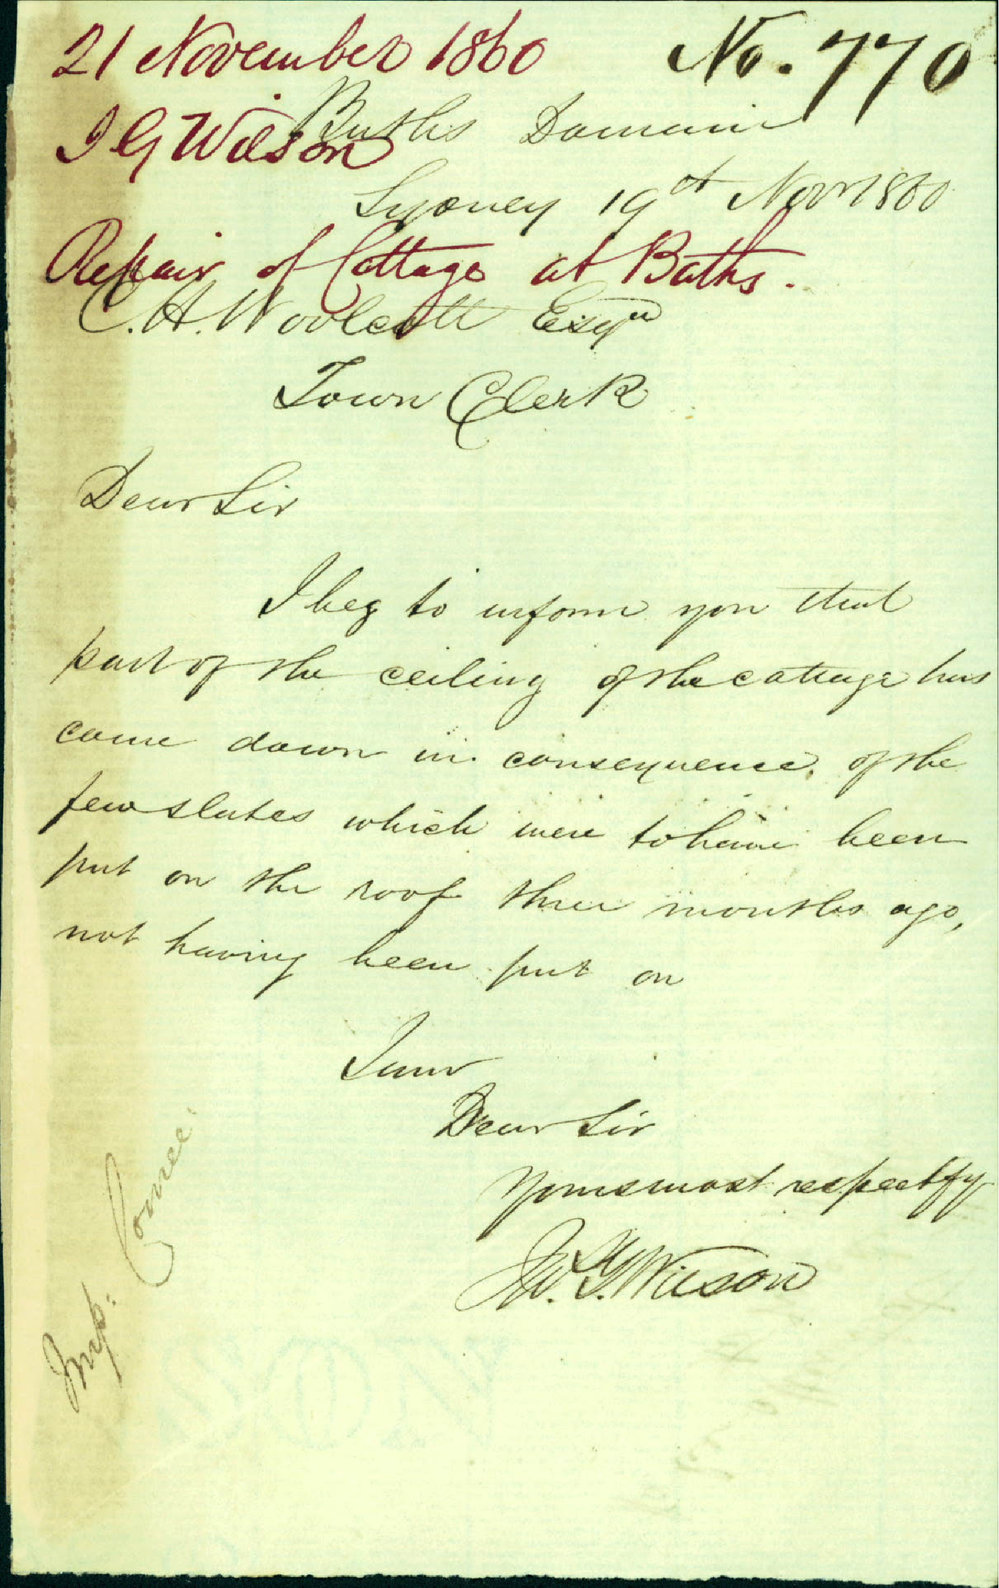 21 November 1860
No. 770
J G Wilson
Baths Domain
Sydney 19th Novr 1860
Repair of Cottage at Baths.
C. H. Woolcott Esqre
Town Clerk
Dear Sir
I beg to inform you that
part of the ceiling of the cottage has
come down in consequence of the
few slates which were to have been
put on the roof three months ago,
not having been put on
I am
Dear Sir
Yours most respectfy
Jno. G. Wilson
Imp: Comee